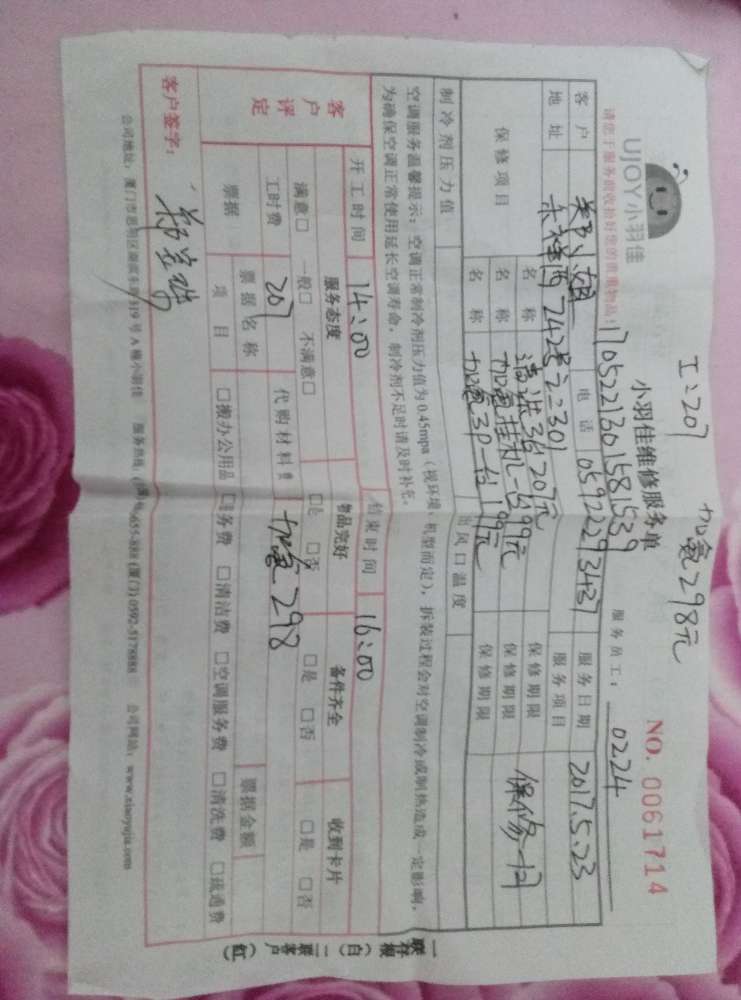 工:207 加氟298元
UJOY小羽佳
小羽佳维修服务单
NO. 0061714
请您于服务前收拾好您的贵重物品!
1705221301581539
服务员工: 0224
客户 郑小姐 电话 05922293437 服务日期 2017.5.23
地址 东坪西242号之二301 服务项目
保修项目 名称 清洗3台207元 保修期限
名称 加氟挂机一台99元 保修期限 保修一月
名称 加氟3P一台199元 保修期限
制冷剂压力值 出风口温度
空调服务温馨提示:空调正常制冷剂压力值为0.45mpa(视环境、机型而定),拆装过程会对空调制冷或制热造成一定影响,
为确保空调正常使用延长空调寿命,制冷剂不足时请及时补充。
开工时间 14:00 结束时间 16:00
客户评定
服务态度 物品完好 备件齐全 收到卡片
满意□ 一般□ 不满意□ □是 □否 □是 □否 □是 □否
工时费 207 代购材料费 加氟298
票据 票据名称 票据金额
项目 □搬办公用品 □服务费 □清洁费 □空调服务费 □清洗费 □疏通费
客户签字:
公司地址:厦门市思明区 319号A幢小羽佳 服务热线: 655-888 (厦门)0592-5178888 公司网站:www.xiaoyujia.com
一联存根(白) 二联客户(红)